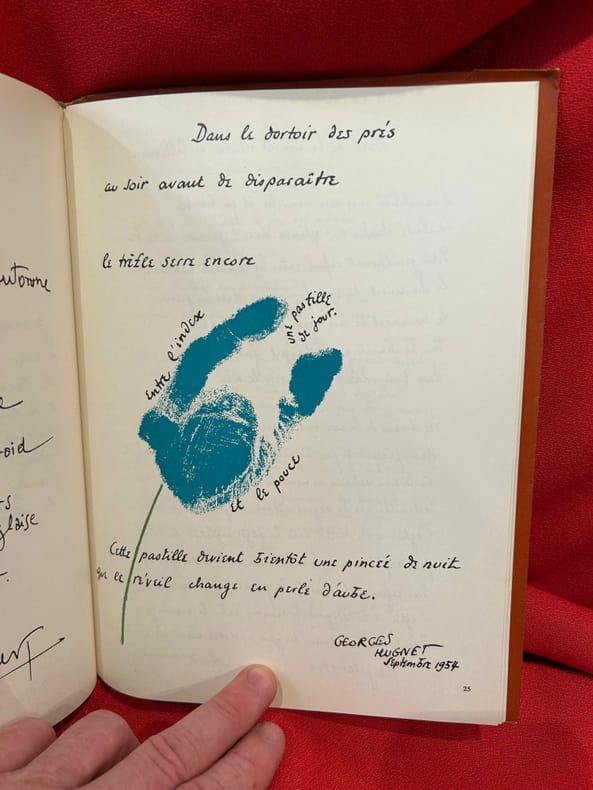 Dans le dortoir des prés
au soir avant de disparaître
le trèfle serre encore
entre l'index
une pastille
de jour.
et le pouce
Cette pastille devient bientôt une pincée de nuit
que le réveil change en perle d'aube.
GEORGES
HUGNET
Septembre 1954
25